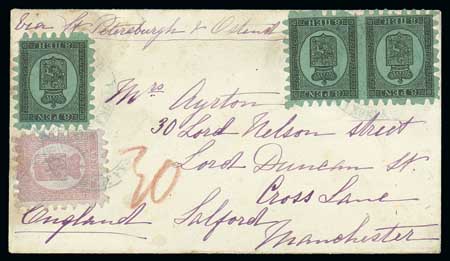 Via St Petersburgh & Ostend
8. PEN: 8. PEN: 8. PEN:
Mrs Ayrton
30 Lord Nelson street
Lord Duncan St.
30
Cross Lane
England Salford
Manchester